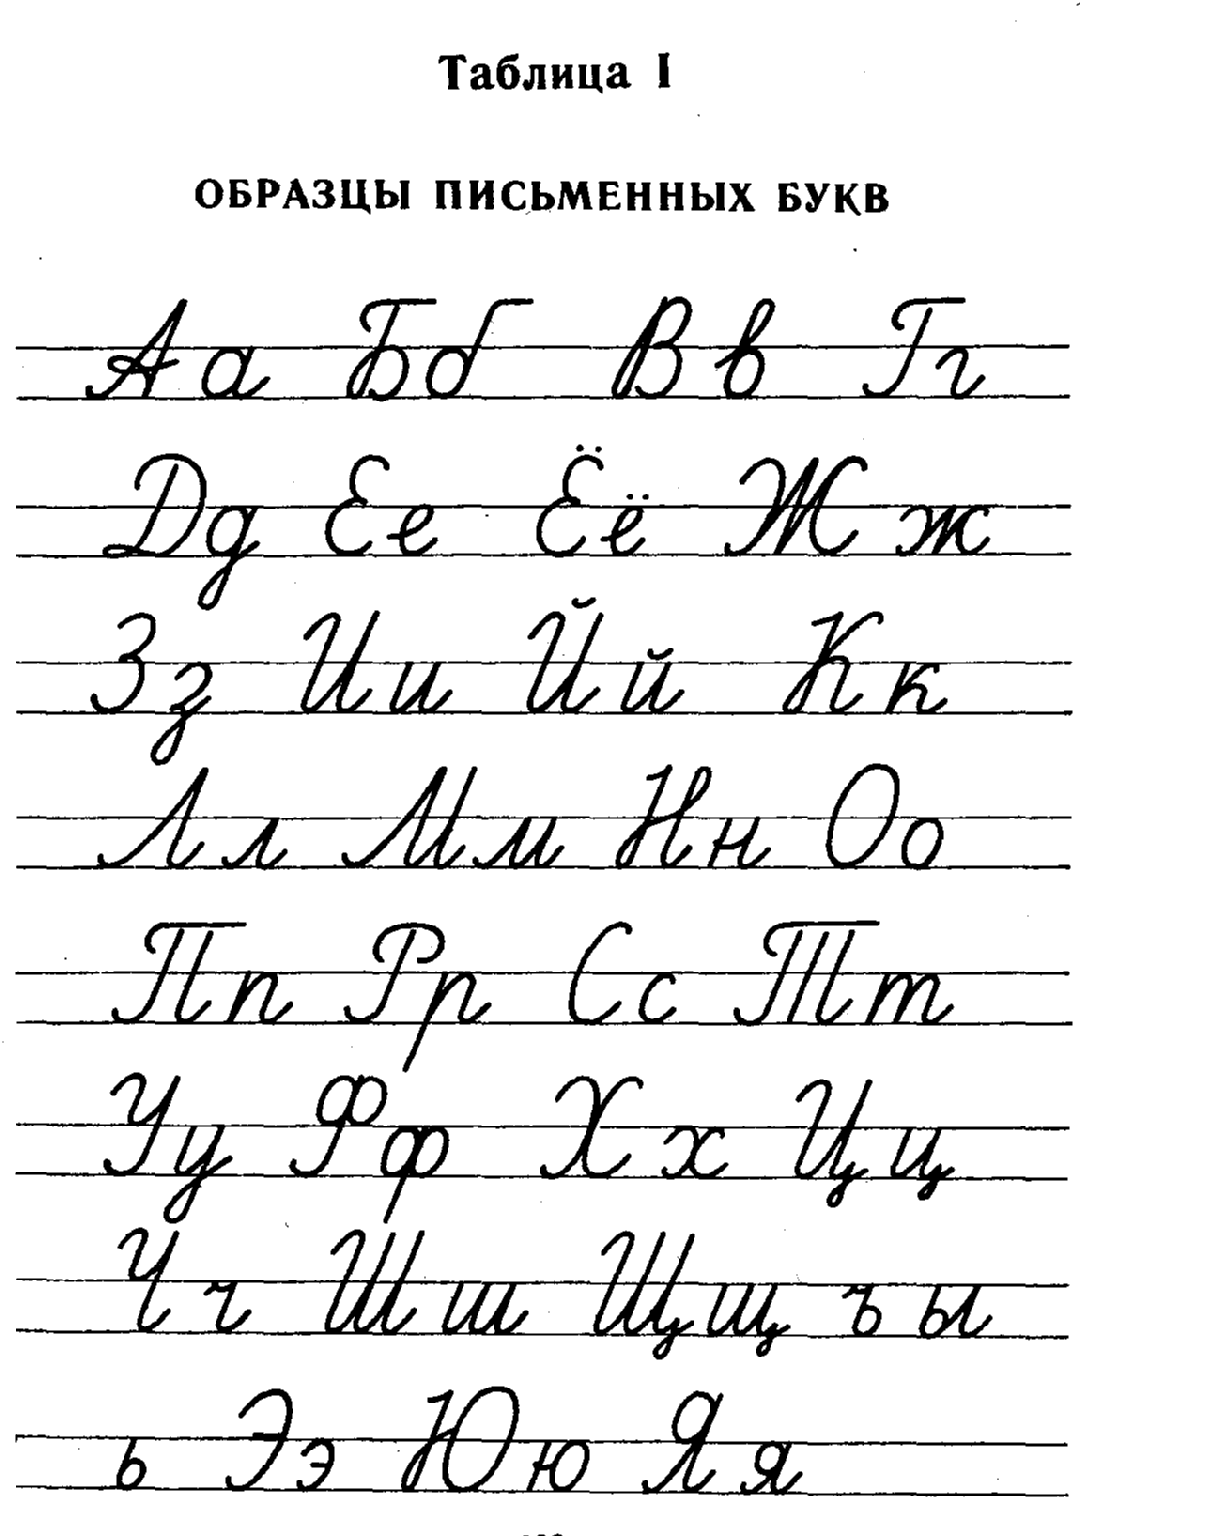 Таблица I
ОБРАЗЦЫ ПИСЬМЕННЫХ БУКВ
Аа Бб Вв Гг
Дд Ее Ёё Жж
Зз Ии Йй Кк
Лл Мм Нн Оо
Пп Рр Сс Тт
Уу Фф Хх Цц
Чч Шш Щщ ъ ы
ь Ээ Юю Яя